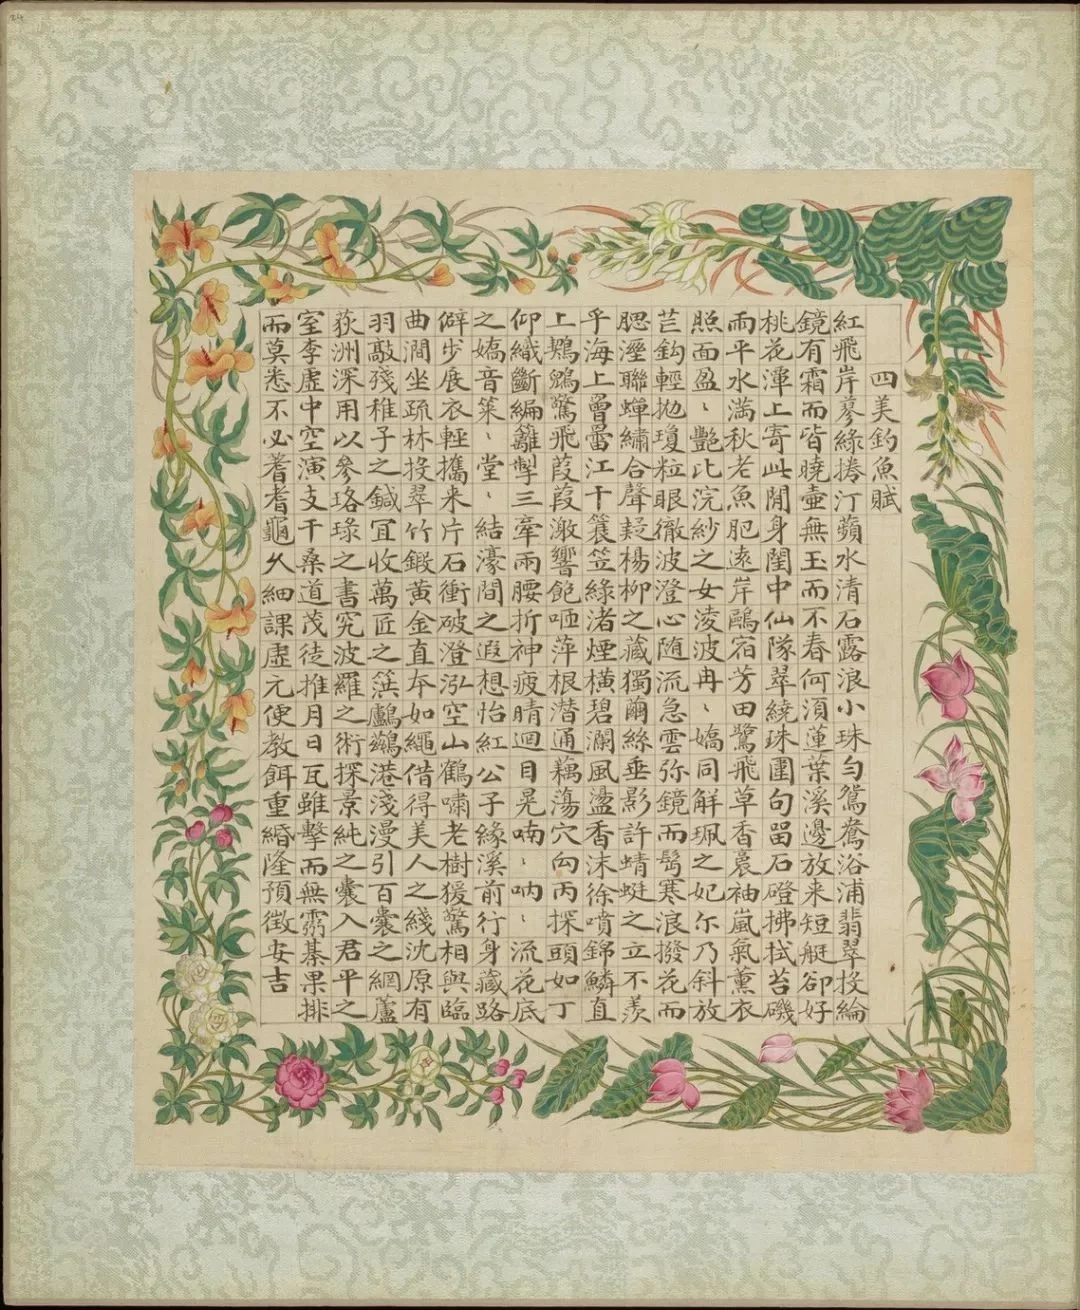 四美釣魚賦
紅飛岸蓼綠捲汀蘋水清石露浪小珠勻鴛鴦浴浦翡翠投綸
鏡有霜而皆曉壺無玉而不春何湏蓮葉溪邊放来短艇卻好
桃花潭上寄此閒身閨中仙隊翠繞珠圍句留石磴拂拭苔磯
雨平水滿秋老魚肥遠岸鷗宿芳田鷺飛草香裛袖嵐氣薰衣
照面盈、艷比浣紗之女淩波冉、嬌同解珮之妃尔乃斜放
苔鈎輕抛瓊粒眼徹波澄心随流急雲弥鏡而髩寒浪撥花而
腮溼聯蟬繡合聲疑楊柳之藏獨繭絲垂影許蜻蜓之立不羨
乎海上曾罾江干簑笠綠渚煙橫碧瀾風盪香沫徐噴錦鱗直
上鶃鶂驚飛葭葭激響飽咂萍根潛通藕蕩穴向丙探頭如丁
仰織斷編籬掣三牽兩腰折神疲晴迴目晃喃、吶、流花底
之嬌音策、堂、結濠間之遐想怡紅公子緣溪前行身藏路
僻步展衣輕攜来片石衝破澄泓空山鶴嘯老樹猨驚相與臨
曲澗坐疏林投翠竹鍛黃金直夲如繩借得美人之綫沈原有
羽敲殘稚子之鍼冝收萬匠之篊鸕鷀港淺漫引百嚢之網蘆
荻洲深用以參珞琭之書究波羅之術探景純之嚢入君平之
室李虛中空演支干桑道茂徒推月日瓦雖擊而無霛棊果排
而莫悉不必蓍耆龜久細課虛元使教餌重緡隆預徴安吉